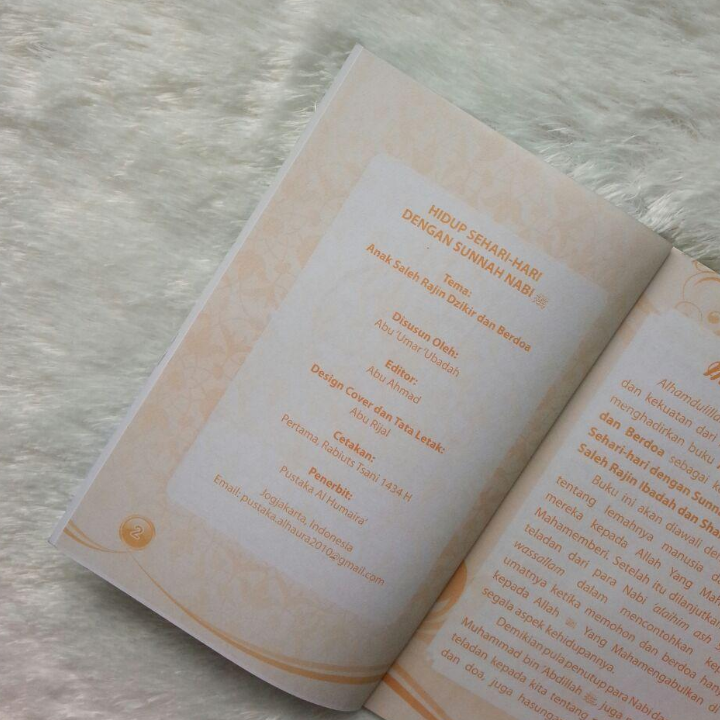 HIDUP SEHARI-HARI
DENGAN SUNNAH NABI ﷺ
Tema:
Anak Saleh Rajin Dzikir dan Berdoa
Disusun Oleh:
Abu 'Umar 'Ubadah
Editor:
Abu Ahmad
Design Cover dan Tata Letak:
Abu Rijal
Cetakan:
Pertama, Rabiuts Tsani 1434 H
Penerbit:
Pustaka Al Humaira'
Jogjakarta, Indonesia
Email: pustaka.alhaura2010@gmail.com
2
dan kekuatan dari
menghadirkan buku
dan Berdoa sebagai
Sehari-hari dengan
Saleh Rajin Ibadah dan
Buku ini akan diawali
tentang lemahnya manusia
mereka kepada Allah Yang
Mahamemberi. Setelah itu dilanjutkan
teladan dari para Nabi alaihim ash
wassallam dalam mencontohkan
umatnya ketika memohon dan berdoa
kepada Allah ﷻ Yang Mahamengabulkan
segala aspek kehidupannya.
Demikian puja penutup para Nabi
Muhammad bin 'Abdillah ﷺ, juga
teladan kepada kita tentang
dan doa, juga